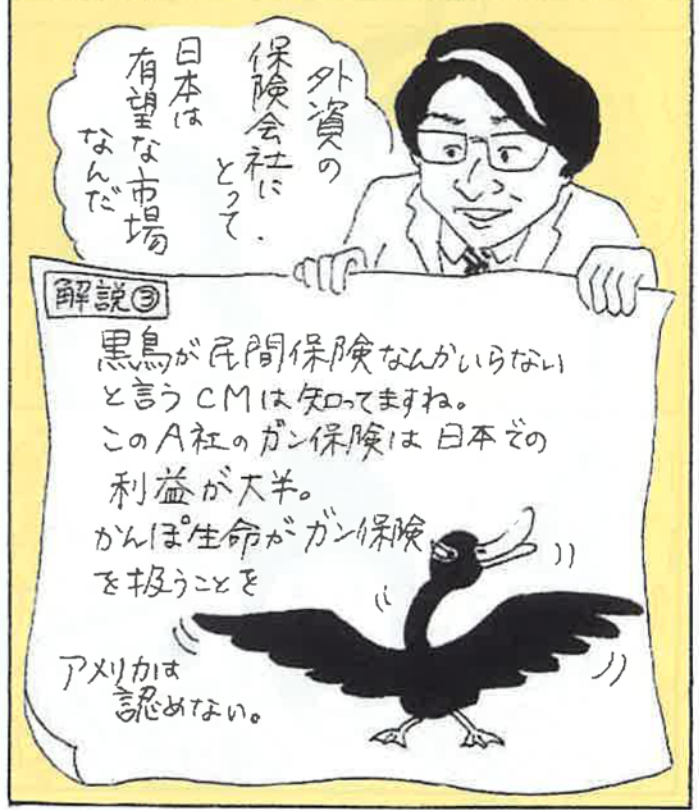 外資の
保険会社に
とって
日本は
有望な市場
なんだ
解説③
黒鳥が民間保険なんかいらない
と言うCMは知ってますね。
このA社のガン保険は日本での
利益が大半。
かんぽ生命がガン保険
を扱うことを
アメリカは
認めない。